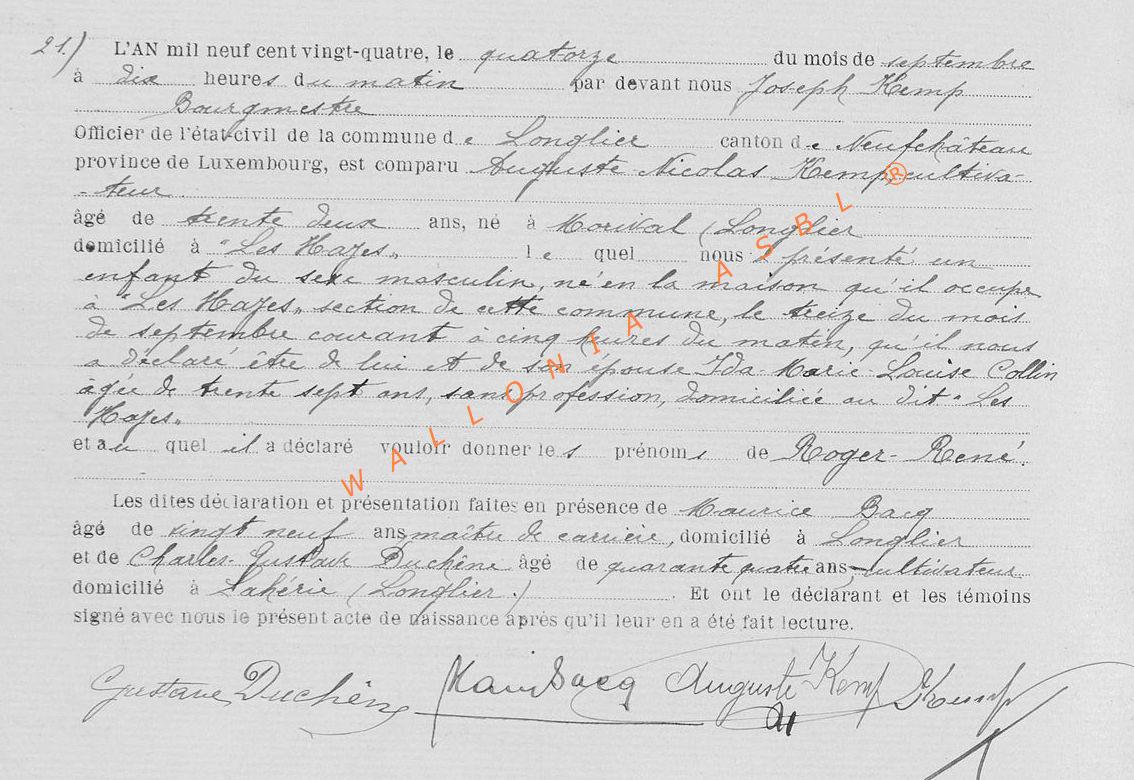 21.) L'AN mil neuf cent vingt-quatre, le quatorze du mois de septembre
à dix heures du matin par devant nous Joseph Kemp
Bourgmestre
Officier de l'état-civil de la commune de Longlier canton de Neufchâteau
province de Luxembourg, est comparu Auguste Nicolas Kemp, cultiva-
-teur
âgé de trente deux ans, né à Morival (Longlier
domicilié à "Les Hazes" le quel nous a présenté un
enfant du sexe masculin, né en la maison qu'il occupe
à "Les Hazes" section de cette commune, le treize du mois
de septembre courant à cinq heures du matin, qu'il nous
a déclaré être de lui et de son épouse Ida Marie Louise Collin
âgée de trente sept ans, sans profession, domiciliée au dit "Les
Hazes"
et au quel il a déclaré vouloir donner les prénoms de Roger-René.
Les dites déclaration et présentation faites en présence de Maurice Bacq
âgé de vingt neuf ans maître de carrière, domicilié à Longlier
et de Charles-Gustave Duchêne âgé de quarante quatre ans, cultivateur
domicilié à Lahérie (Longlier.) Et ont le déclarant et les témoins
signé avec nous le présent acte de naissance après qu'il leur en a été fait lecture.
Gustave Duchêne Bacq Auguste Kemp Kemp
WALLONIA ASBL ®